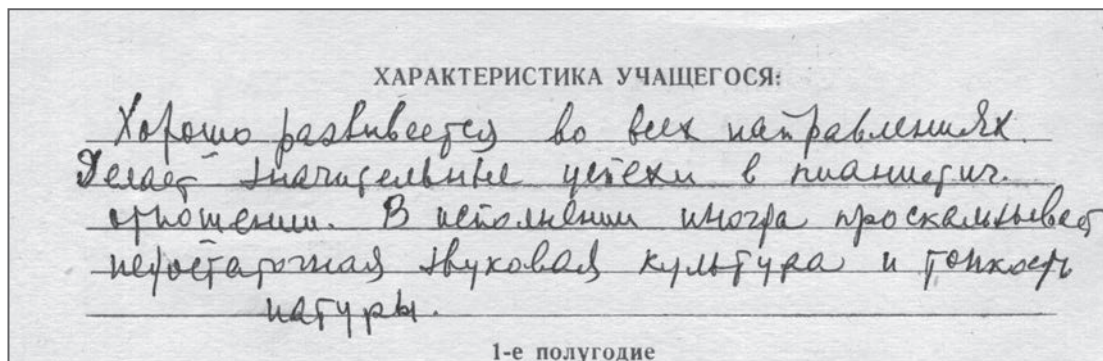 ХАРАКТЕРИСТИКА УЧАЩЕГОСЯ:
Хорошо развивается во всех направлениях.
Делает значительные успехи в пианистич.
отношении. В исполнении иногда проскальзывает
недостаточная звуковая культура и тонкость
натуры.
1-е полугодие